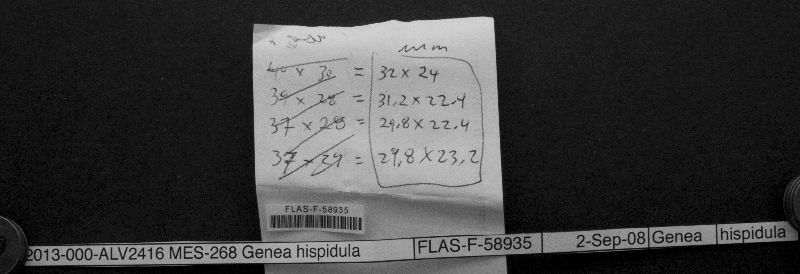 mm
40 x 30 = 32 x 24
39 x 28 = 31.2 x 22.4
37 x 28 = 29.8 x 22.4
37 x 29 = 29.8 x 23.2
FLAS-F-58935
2013-000-ALV2416 MES-268 Genea hispidula FLAS-F-58935 2-Sep-08 Genea hispidula